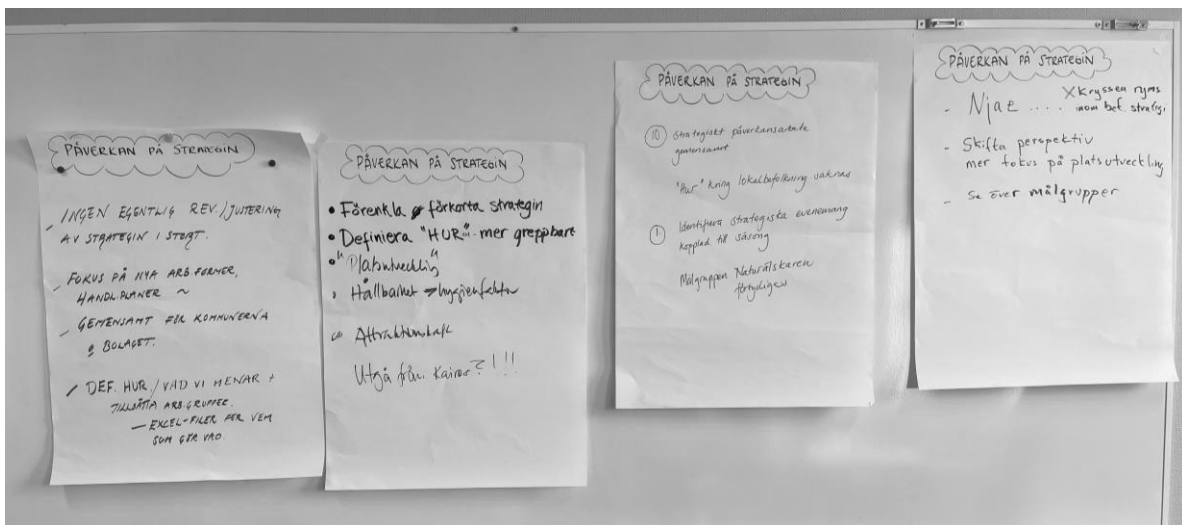 PÅVERKAN PÅ STRATEGIN
- INGEN EGENTLIG REV./JUSTERING
AV STRATEGIN I STORT.
- FOKUS PÅ NYA ARB.FORMER,
HANDL.PLANER ~
- GEMENSAMT FÖR KOMMUNERNA
& BOLAGET.
- DEF. HUR / VAD VI MENAR +
TILLSÄTTA ARB.GRUPPER.
- EXCEL-FILER FÖR VEM
SOM GÖR VAD.
PÅVERKAN PÅ STRATEGIN
• Förenkla & förkorta strategin
• Definiera "HUR" - mer greppbart
• "Platsutveckling"
• Hållbarhet → hygienfaktor
Attraktionskraft
Utgå från Kairos?!!!
PÅVERKAN PÅ STRATEGIN
10 Strategiskt påverkansarbete
gemensamt
"Hur" kring lokalbefolkning saknas
1 Identifiera strategiska evenemang
kopplad till säsong
Målgruppen Naturälskaren
förtydligas
PÅVERKAN PÅ STRATEGIN
- Njae .... X Kryssen ryms
inom bef. strategi
- Skifta perspektiv
mer fokus på platsutveckling
- Se över målgrupper